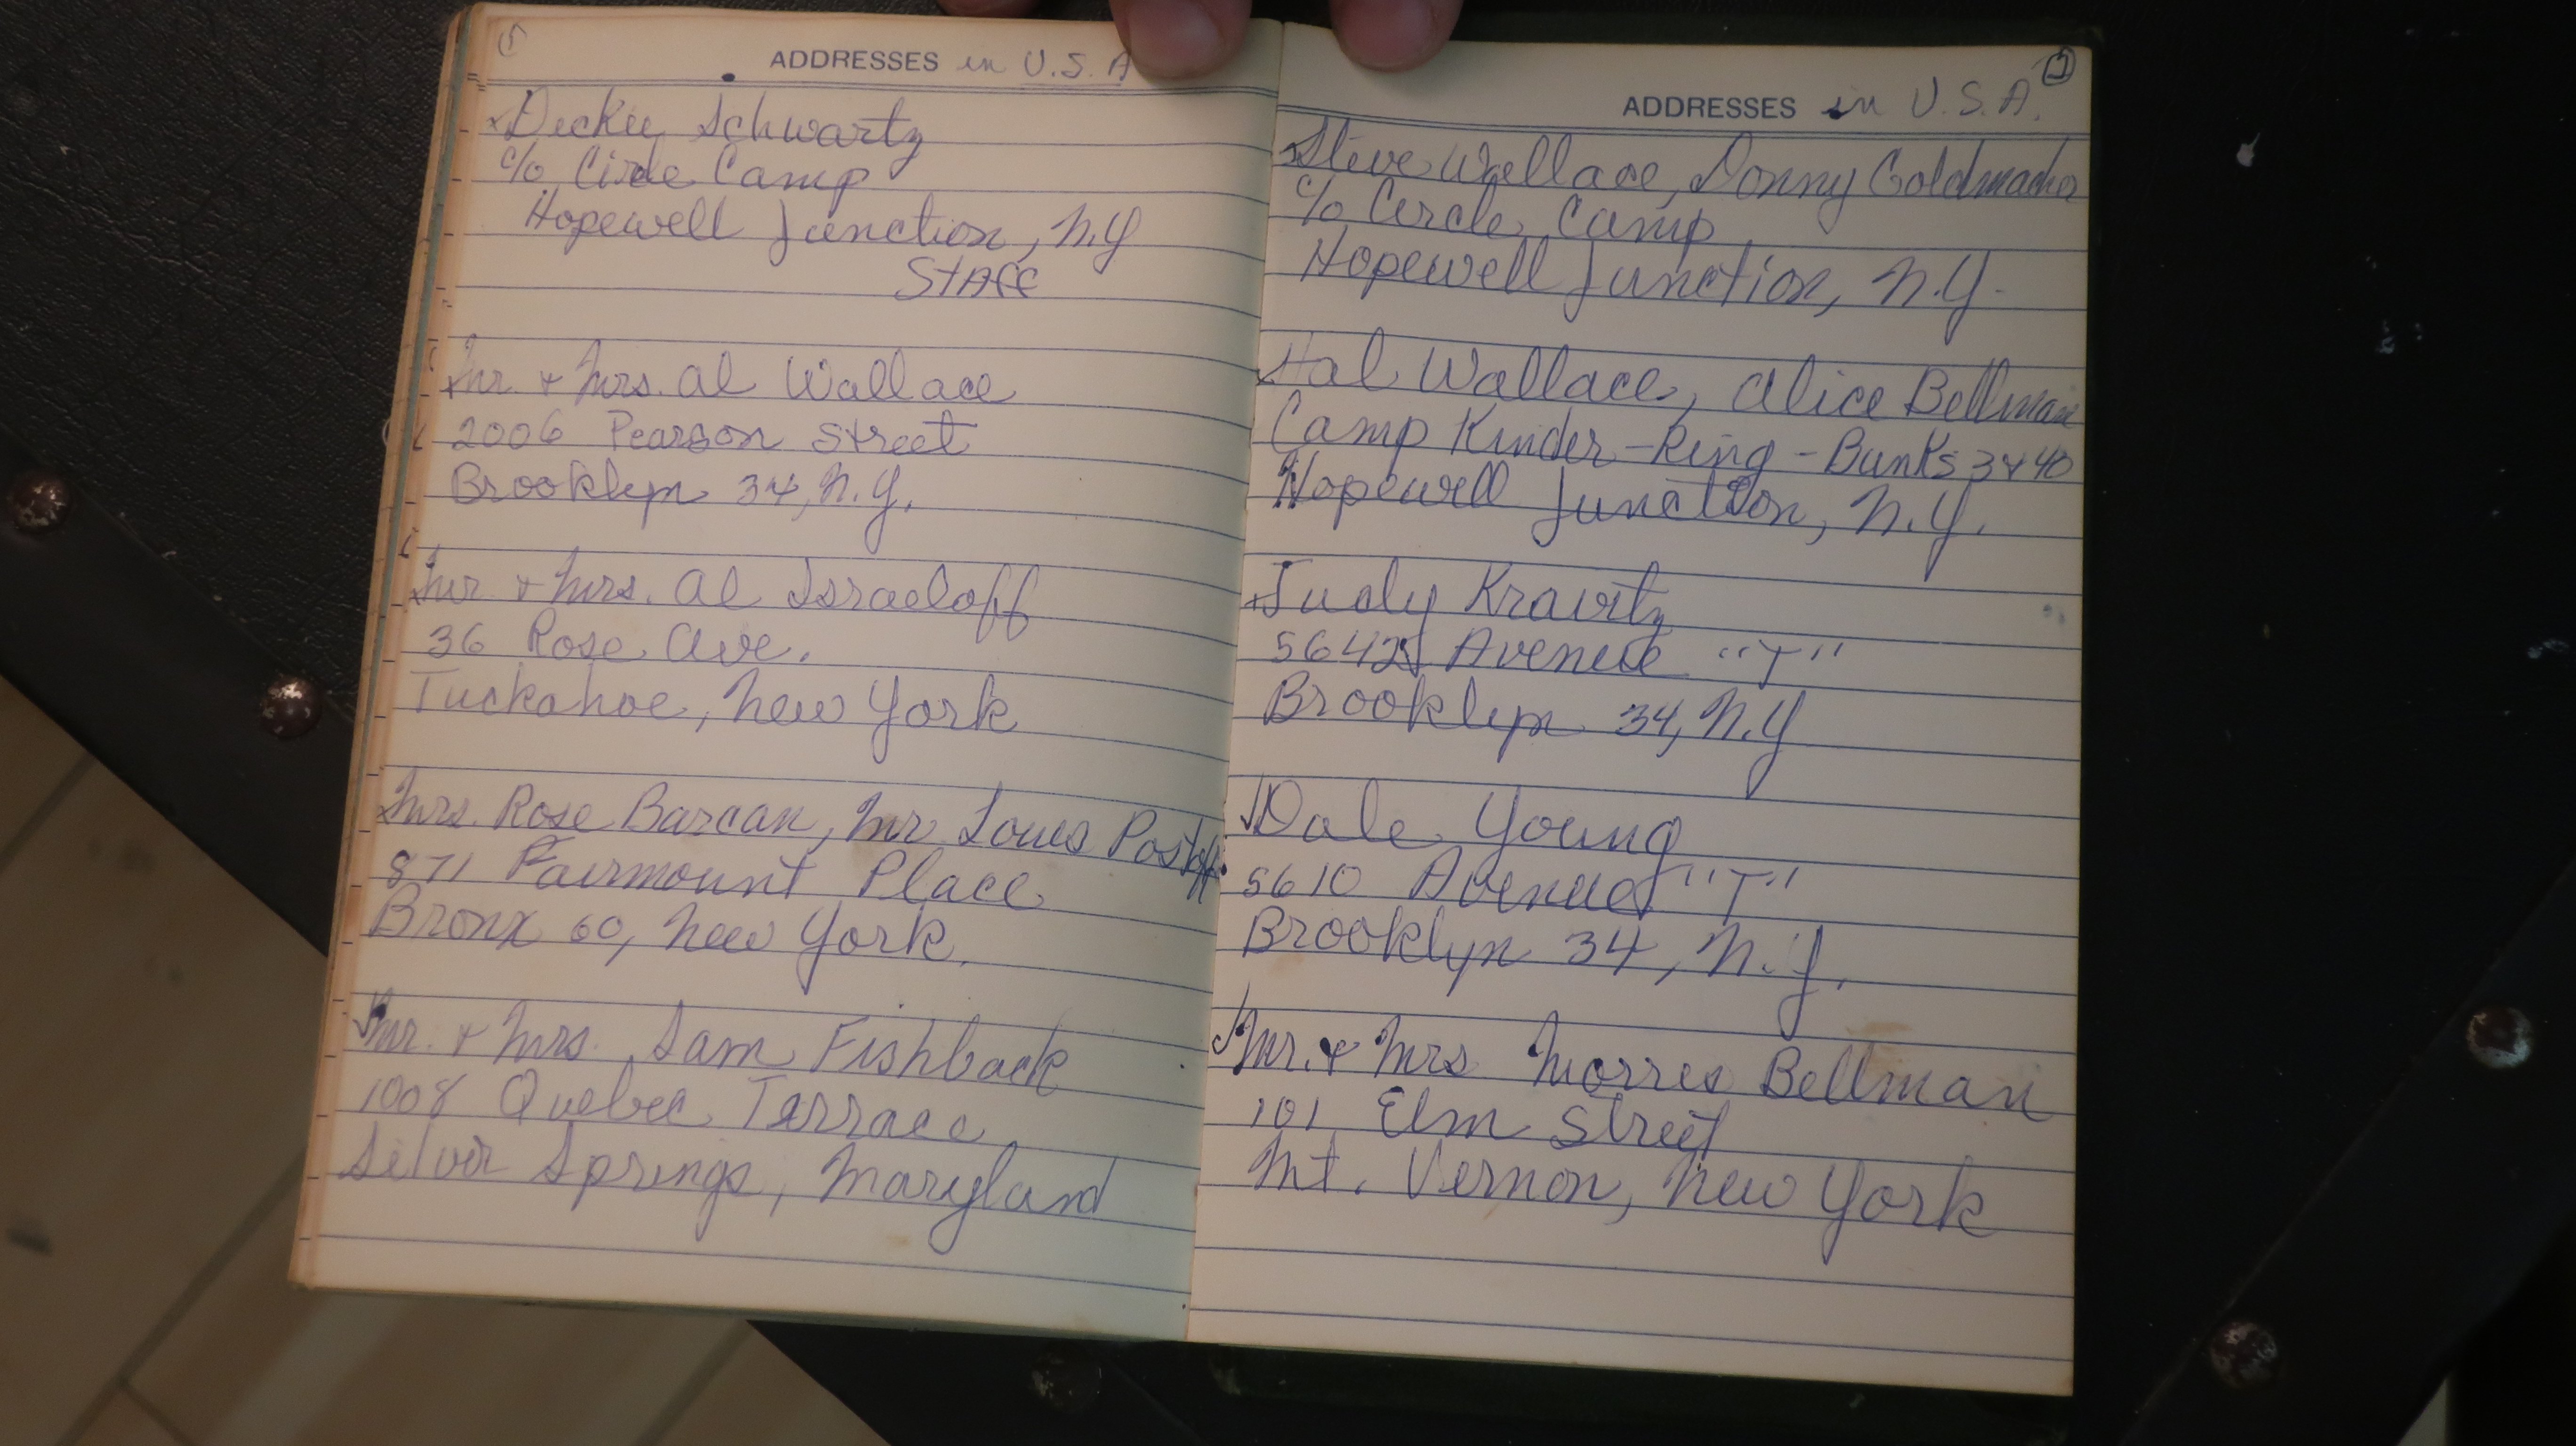 ADDRESSES in U.S.A
Dickie Schwartz
c/o Circle Camp
Hopewell Junction, N.Y
Staff
Mr. + Mrs. Al Wallace
2006 Pearson Street
Brooklyn 34, N.Y.
Mr. + Mrs. Al Israeloff
36 Rose Ave.
Tuckahoe, New York
Mrs. Rose Barcan, Mr Louis
871 Fairmount Place
Bronx 60, New York.
Mr. + Mrs. Sam Fishback
1008 Quebec Terrace
Silver Springs, Maryland
ADDRESSES in U.S.A.
Steve Wallace, Donny Goldmacher
c/o Circle Camp
Hopewell Junction, N.Y.
Hal Wallace, Alice Bellman
Camp Kinder-Ring - Bunks 3 + 40
Hopewell Junction, N.Y.
Judy Kravitz
Avenue "T"
Brooklyn 34, N.Y
Dale Young
5610 Avenue "T"
Brooklyn 34, N.Y.
Mr. + Mrs Morris Bellman
101 Elm Street
Mt. Vernon, New York